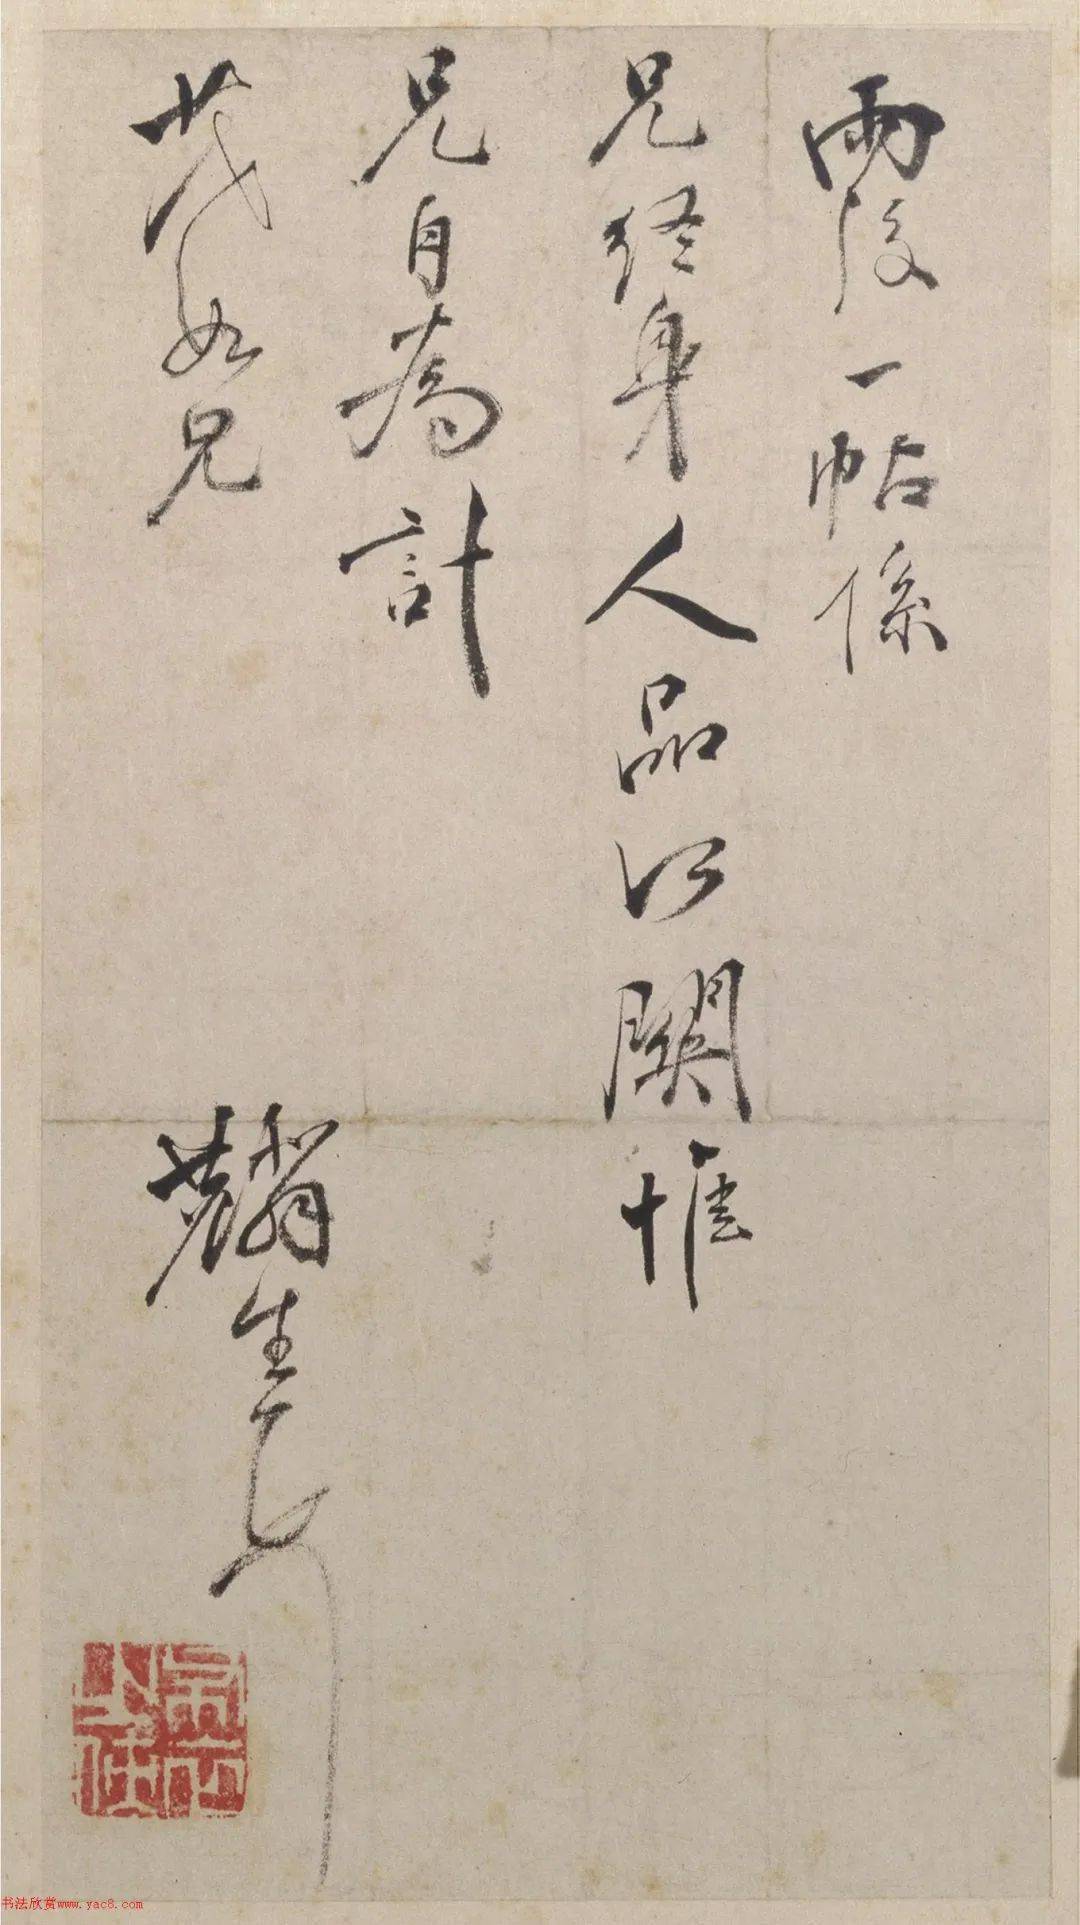 雨後一帖係
兄終身人品所關惟
兄自為計
茂如兄
麟生
书法欣赏www.yac8.com